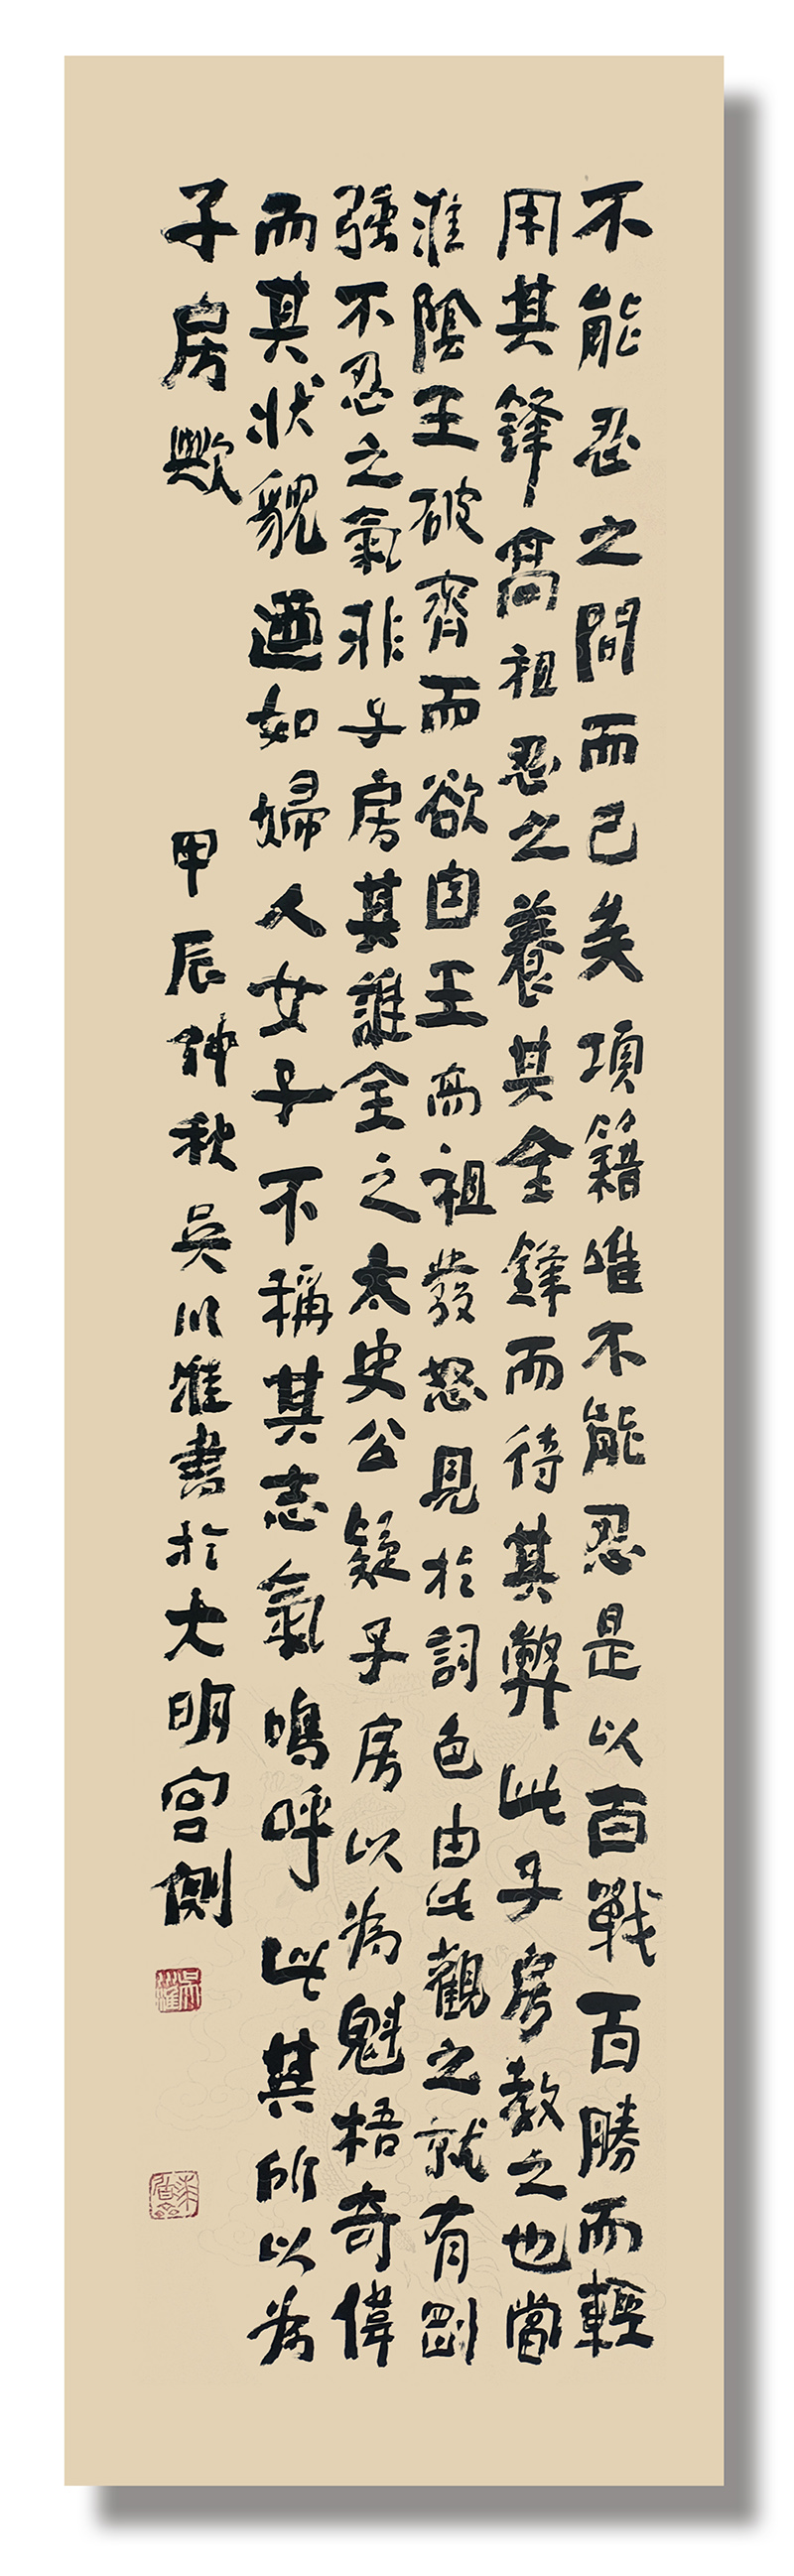 不能忍之間而已矣項籍唯不能忍是以百戰百勝而輕
用其鋒高祖忍之養其全鋒而待其弊此子房教之也當
淮陰王破齊而欲自王高祖發怒見於詞色由此觀之就有剛
强不忍之氣非子房其誰全之太史公疑子房以為魁梧奇偉
而其狀貌迺如婦人女子不稱其志氣嗚呼此其所以為
子房歟
甲辰仲秋吳川淮書於大明宮側